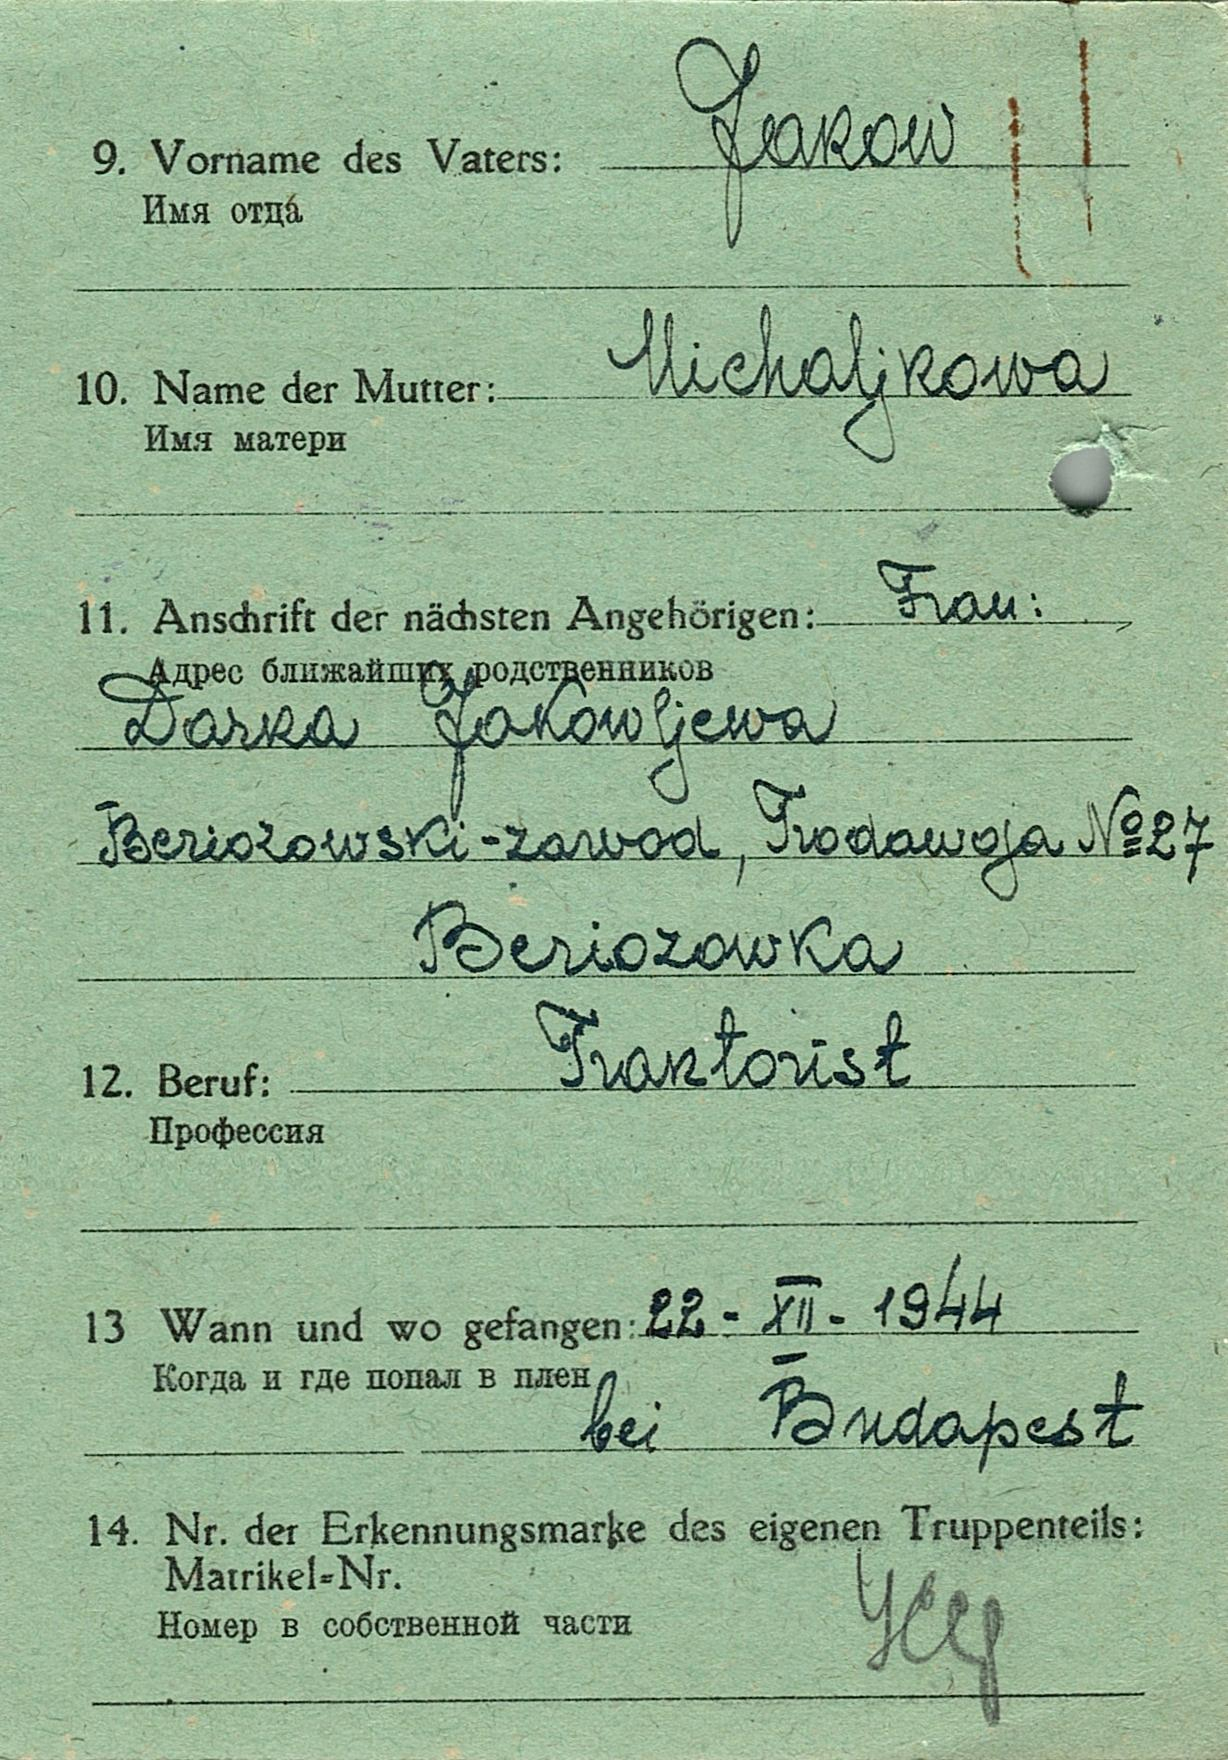 9. Vorname des Vaters: Jakow
Имя отца
10. Name der Mutter: Michaljkowa
Имя матери
11. Anschrift der nächsten Angehörigen: Frau:
Адрес ближайших родственников
Darka Jakowljewa
Beriozowski-zawod, Trodowaja № 27
Beriozowka
12. Beruf: Traktorist
Профессия
13 Wann und wo gefangen: 22 - XII - 1944
Когда и где попал в плен
bei Budapest
14. Nr. der Erkennungsmarke des eigenen Truppenteils:
Matrikel-Nr.
Номер в собственной части